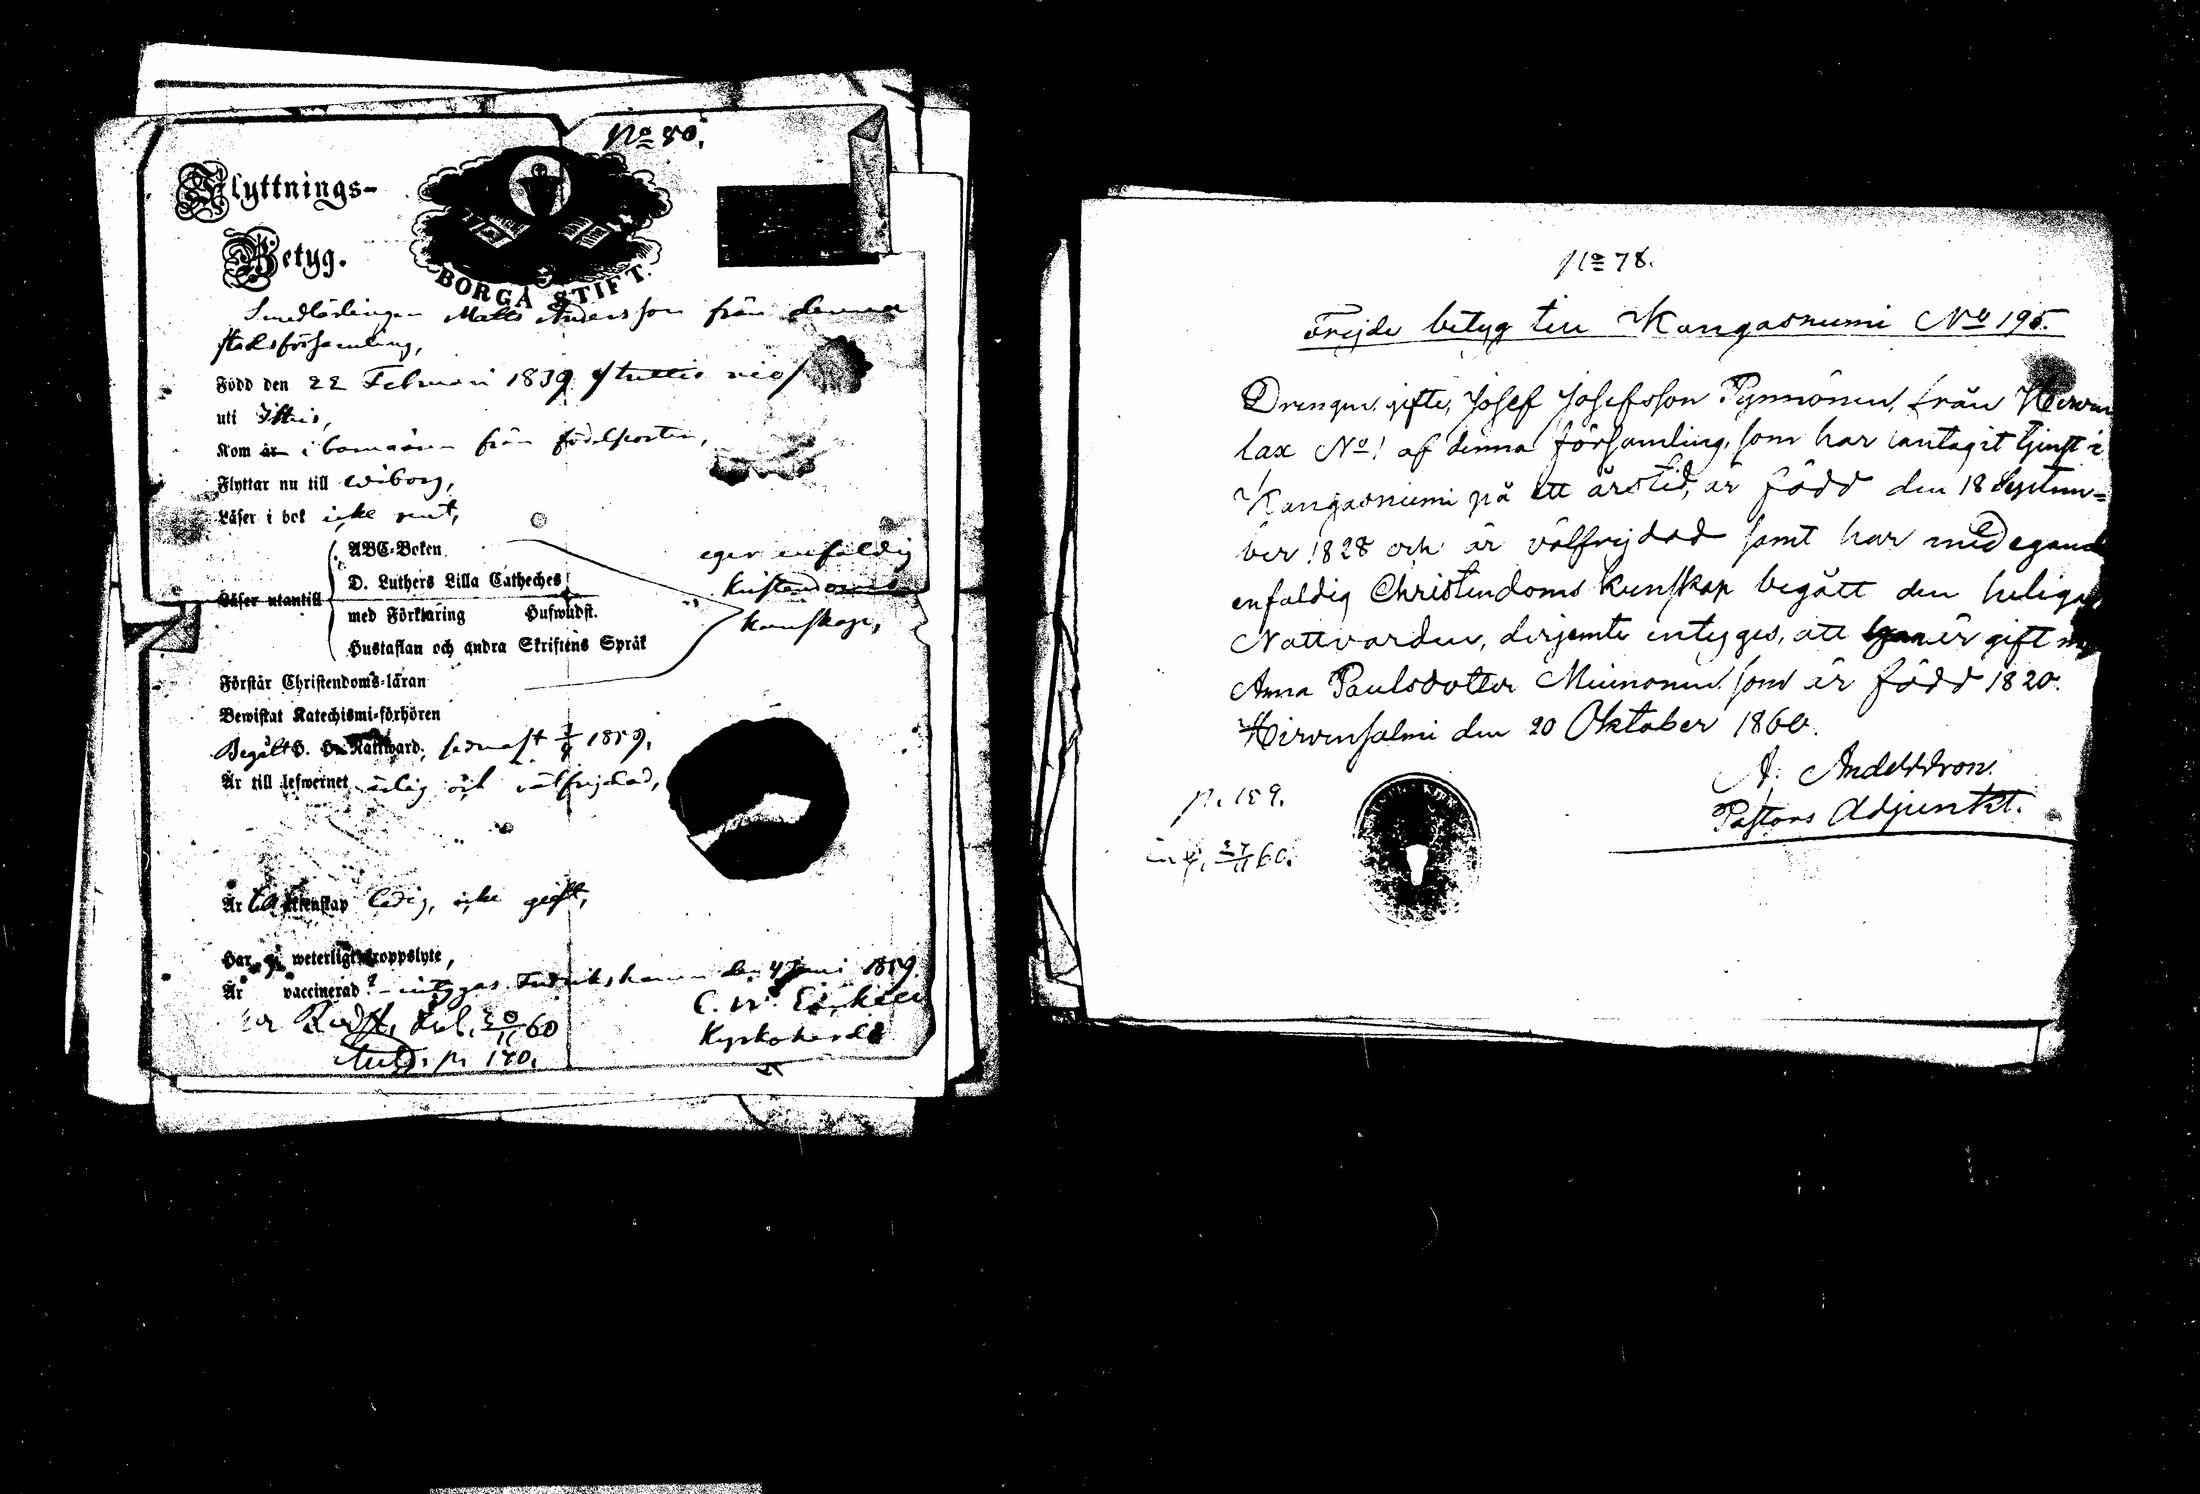 No 80.
Flyttnings-
Betyg.
BORGÅ STIFT.
Smedlärlingen Matts Andersson från denna
stadsförsamling,
Född den 22 Februari 1839 /trettio nio/
uti Ittis,
Kom år i barnaåren från födelseorten,
Flyttar nu till Wiborg,
Läser i bok icke rent,
Läser utantill
ABC-Boken
D. Luthers Lilla Catheches
med Förklaring Hufwudst.
Hustaflan och andra Skriftens Språk
eger enfaldig
kristendoms
kunskap,
Förstår Christendoms-läran
Bewistat Katechismi-förhören
Begått H. H. Nattward, sednast 1859,
Är till lefwernet ärlig och välfrejdad,
Är till äktenskap ledig, icke gift,
Har ej weterligt kroppslyte,
Är vaccinerad? - intygas Fredrikshamn den 4 Juni 1859.
C. W.
Kyrkoherde
60
p. 170.
No 78.
Frejde betyg till Kangasniemi No 195.
Drengen, gifte, Josef Josefsson Pynnönen, från Hirven
lax No 1 af denna församling, som har antagit tjenst i
Kangasniemi på ett årstid, är född den 18 Septem=
ber 1828 och är välfrejdad samt har med egande
enfaldig Christendoms kunskap begått den heliga
Nattvarden, derjemte intygas, att han är gift med
Anna Paulsdotter Miinonen som är född 1820.
Hirvensalmi den 20 Oktober 1860.
Pastors Adjunkt.
p. 159.
60.